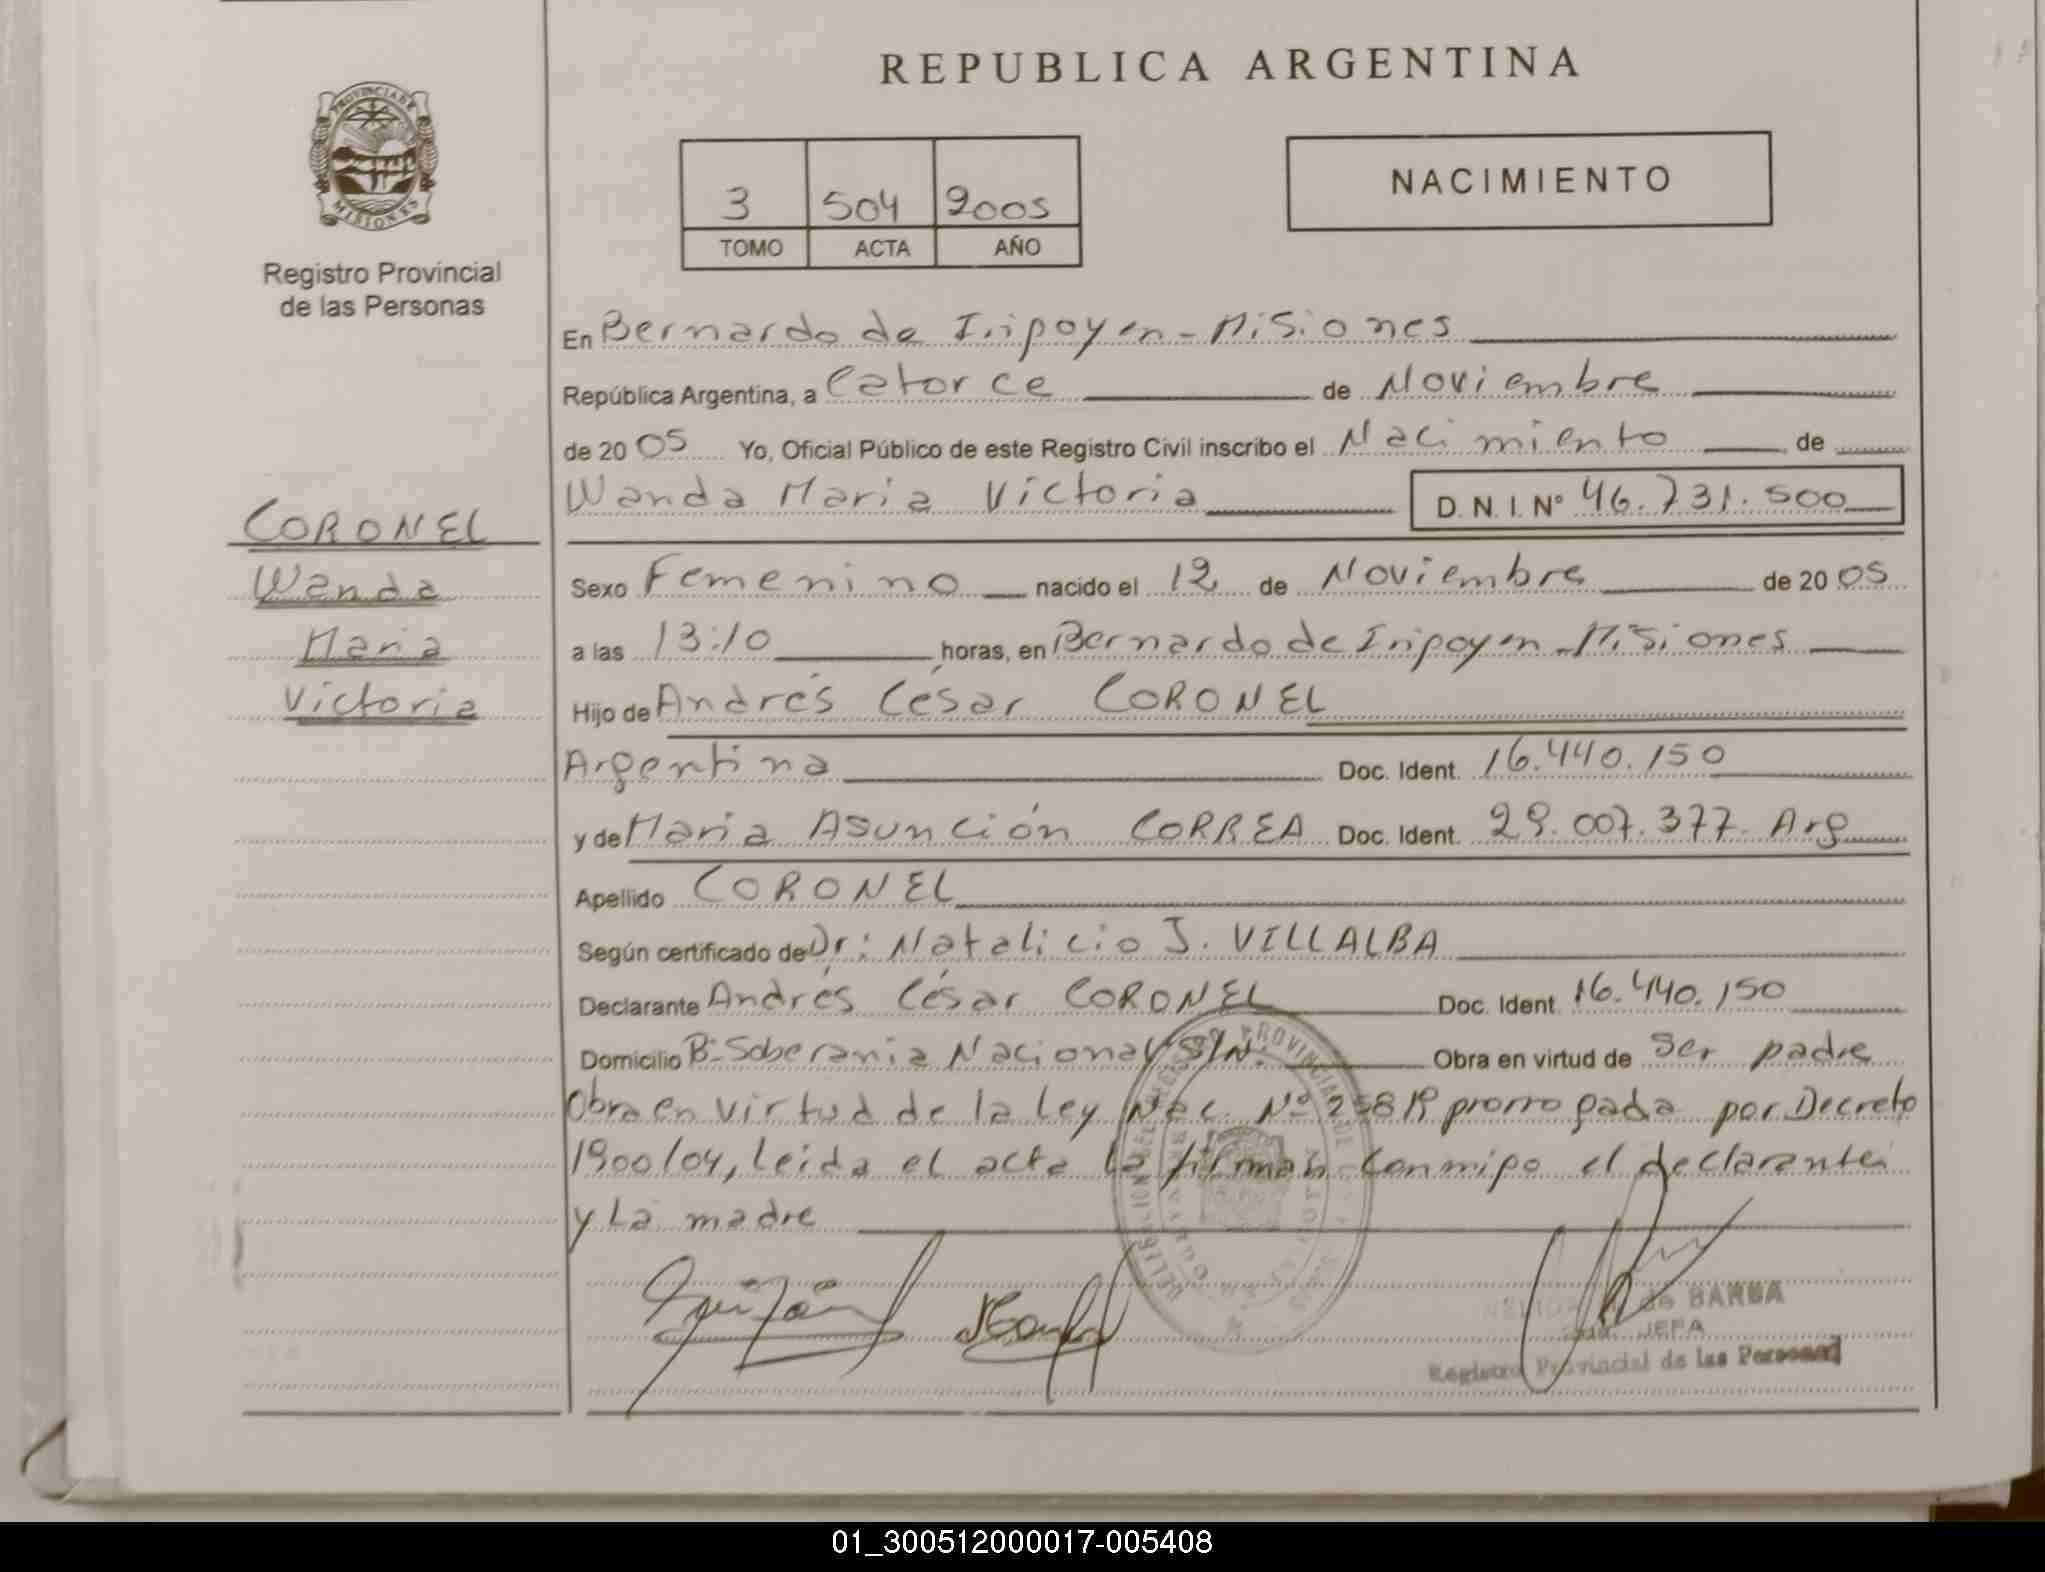 REPUBLICA ARGENTINA
PROVINCIA DE
MISIONES
Registro Provincial
de las Personas
3 504 2005
TOMO ACTA AÑO
NACIMIENTO
En Bernardo de Iripoyen - Misiones
República Argentina, a Catorce de Noviembre
de 20 05 Yo, Oficial Público de este Registro Civil inscribo el Nacimiento de
Wanda Maria Victoria D. N. I. Nº 46.731.500
CORONEL
Wanda
Maria
Victoria
Sexo Femenino nacido el 12 de Noviembre de 20 05
a las 13:10 horas, en Bernardo de Iripoyen - Misiones
Hijo de Andrés César CORONEL
Argentina Doc. Ident. 16.440.150
y de Maria Asunción CORREA Doc. Ident. 29.007.377. Arg
Apellido CORONEL
Según certificado de Dr: Natalicio J. VILLALBA
Declarante Andrés César CORONEL Doc. Ident. 16.440.150
Domicilio Bº Soberania Nacional S/N. Obra en virtud de ser padre
Obra en virtud de la Ley Nac. Nº 25819 prorrogada por Decreto
1900/04, Leida el acta la firman conmigo el declarante
y La madre
de BARBA
JEFA
Registro Provincial de las Personas
01_300512000017-005408